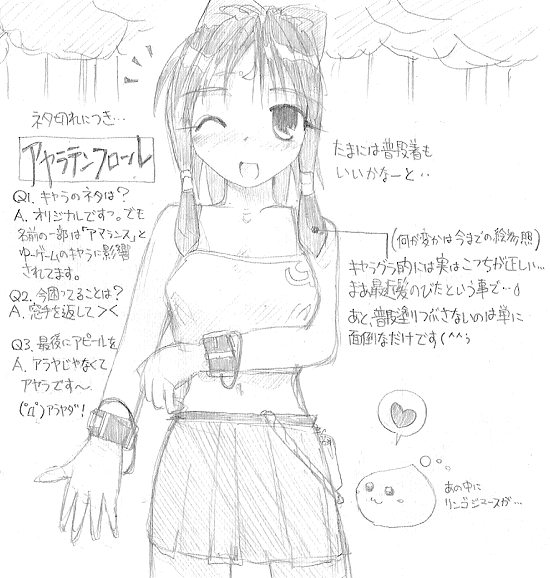 ネタ切れにつき…
アヤラテンフロール
Q1. キャラのネタは?
A. オリジナルですっ。でも
名前の一部は「アマランス」と
ゆーゲームのキャラに影響
されてます。
Q2. 今困ってることは?
A. 空手を返して><
Q3. 最後にアピールを
A. アラヤじゃなくて
アヤラです〜
(゚Д゚)アラヤダ!
たまには普段着も
いいかなーと‥
(何が変かは今までの絵参照)
キャラグラ的には実はこっちが正しい…
まあ最近髪のびたという事で…
あと、普段塗りつぶさないのは単に
面倒なだけです(^^;
あの中に
リンゴジュースが…